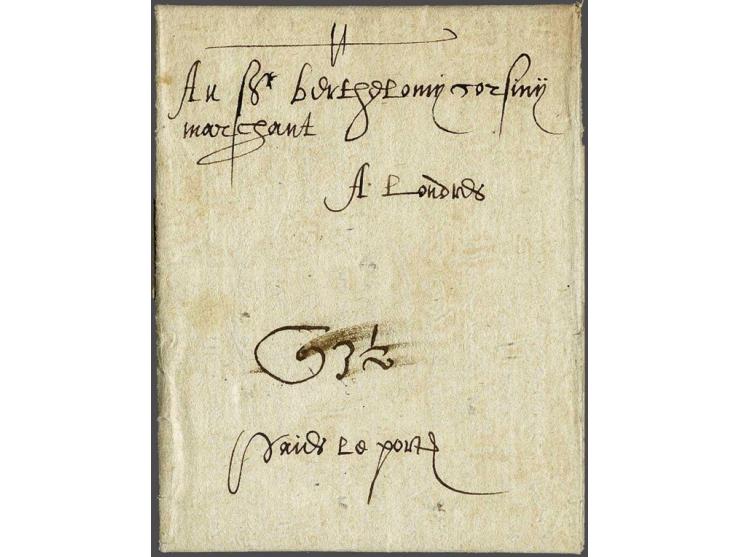 Au Sr berthelomy Corsiny
marchant
A Londres
3½
paids le porte